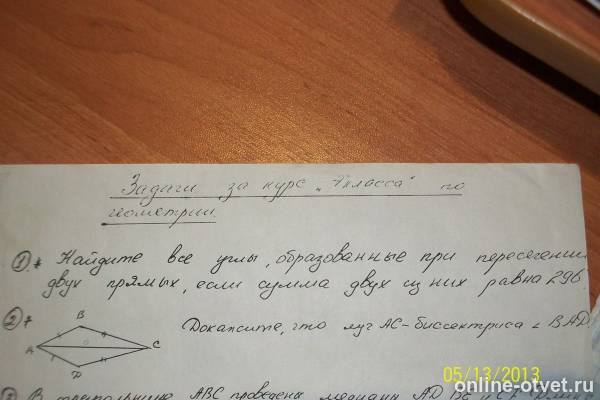 Задачи за курс „7класса" по
геометрии.
1 Найдите все углы, образованные при пересечении
двух прямых, если сумма двух из них равна 296
2 Докажите, что луч АС-биссектриса ∠ ВАД
В
А
С
Д
АВС проведены медианы АД
05/13/2013
online-otvet.ru